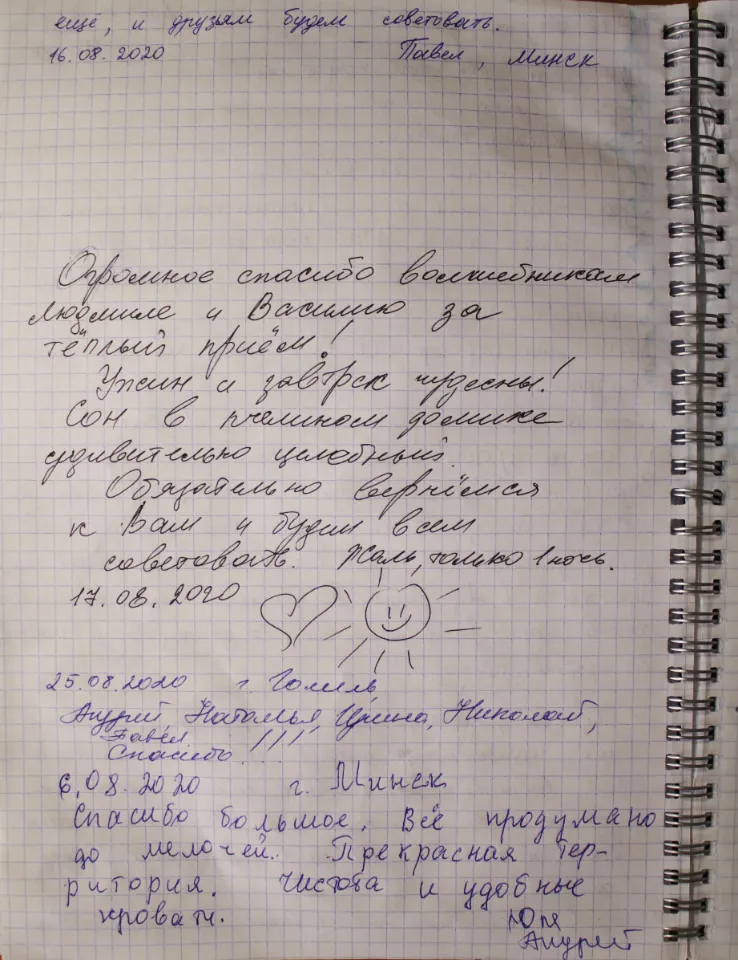 ещё, и друзьям будем советовать.
16.08.2020 Павел, Минск
Огромное спасибо волшебникам
Людмиле и Василию за
тёплый приём!
Ужин и завтрак чудесны!
Сон в пчелином домике
удивительно целебный.
Обязательно вернёмся
к Вам и будем всем
советовать. Жаль, только 1 ночь.
17.08.2020
25.08.2020 г. Гомель
Андрей, Наталья, Ирина, Николай,
Павел
Спасибо !!!
6.08.2020 г. Минск
Спасибо большое. Всё продумано
до мелочей. Прекрасная тер-
ритория. Чистота и удобные
кровати.
Юля
Андрей